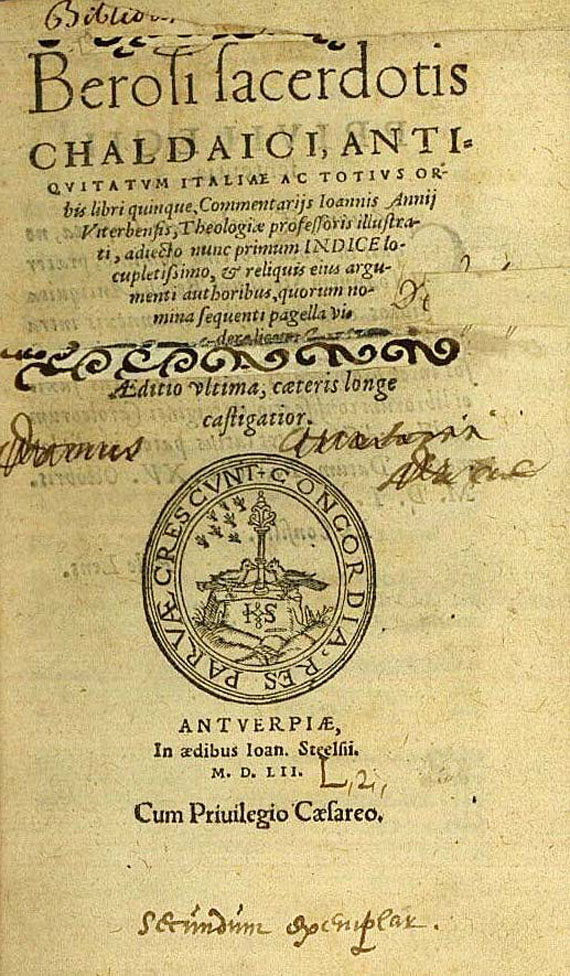 Biblio
Berosi sacerdotis
CHALDAICI, ANTI-
QVITATVM ITALIAE AC TOTIVS OR-
bis libri quinque, Commentarijs Ioannis Annij
Viterbensis, Theologiæ professoris illustra-
ti, adiecto nunc primum INDICE lo-
cupletissimo, & reliquis eius argu-
menti authoribus, quorum no-
mina sequenti pagella vi-
Æditio vltima, cæteris longe
castigatior.
CONCORDIA. RES PARVÆ CRESCVNT
IHS
ANTVERPIÆ,
In ædibus Ioan. Steelsii.
M. D. LII.
L,2,,
Cum Priuilegio Cæsareo.
secundum exemplar.